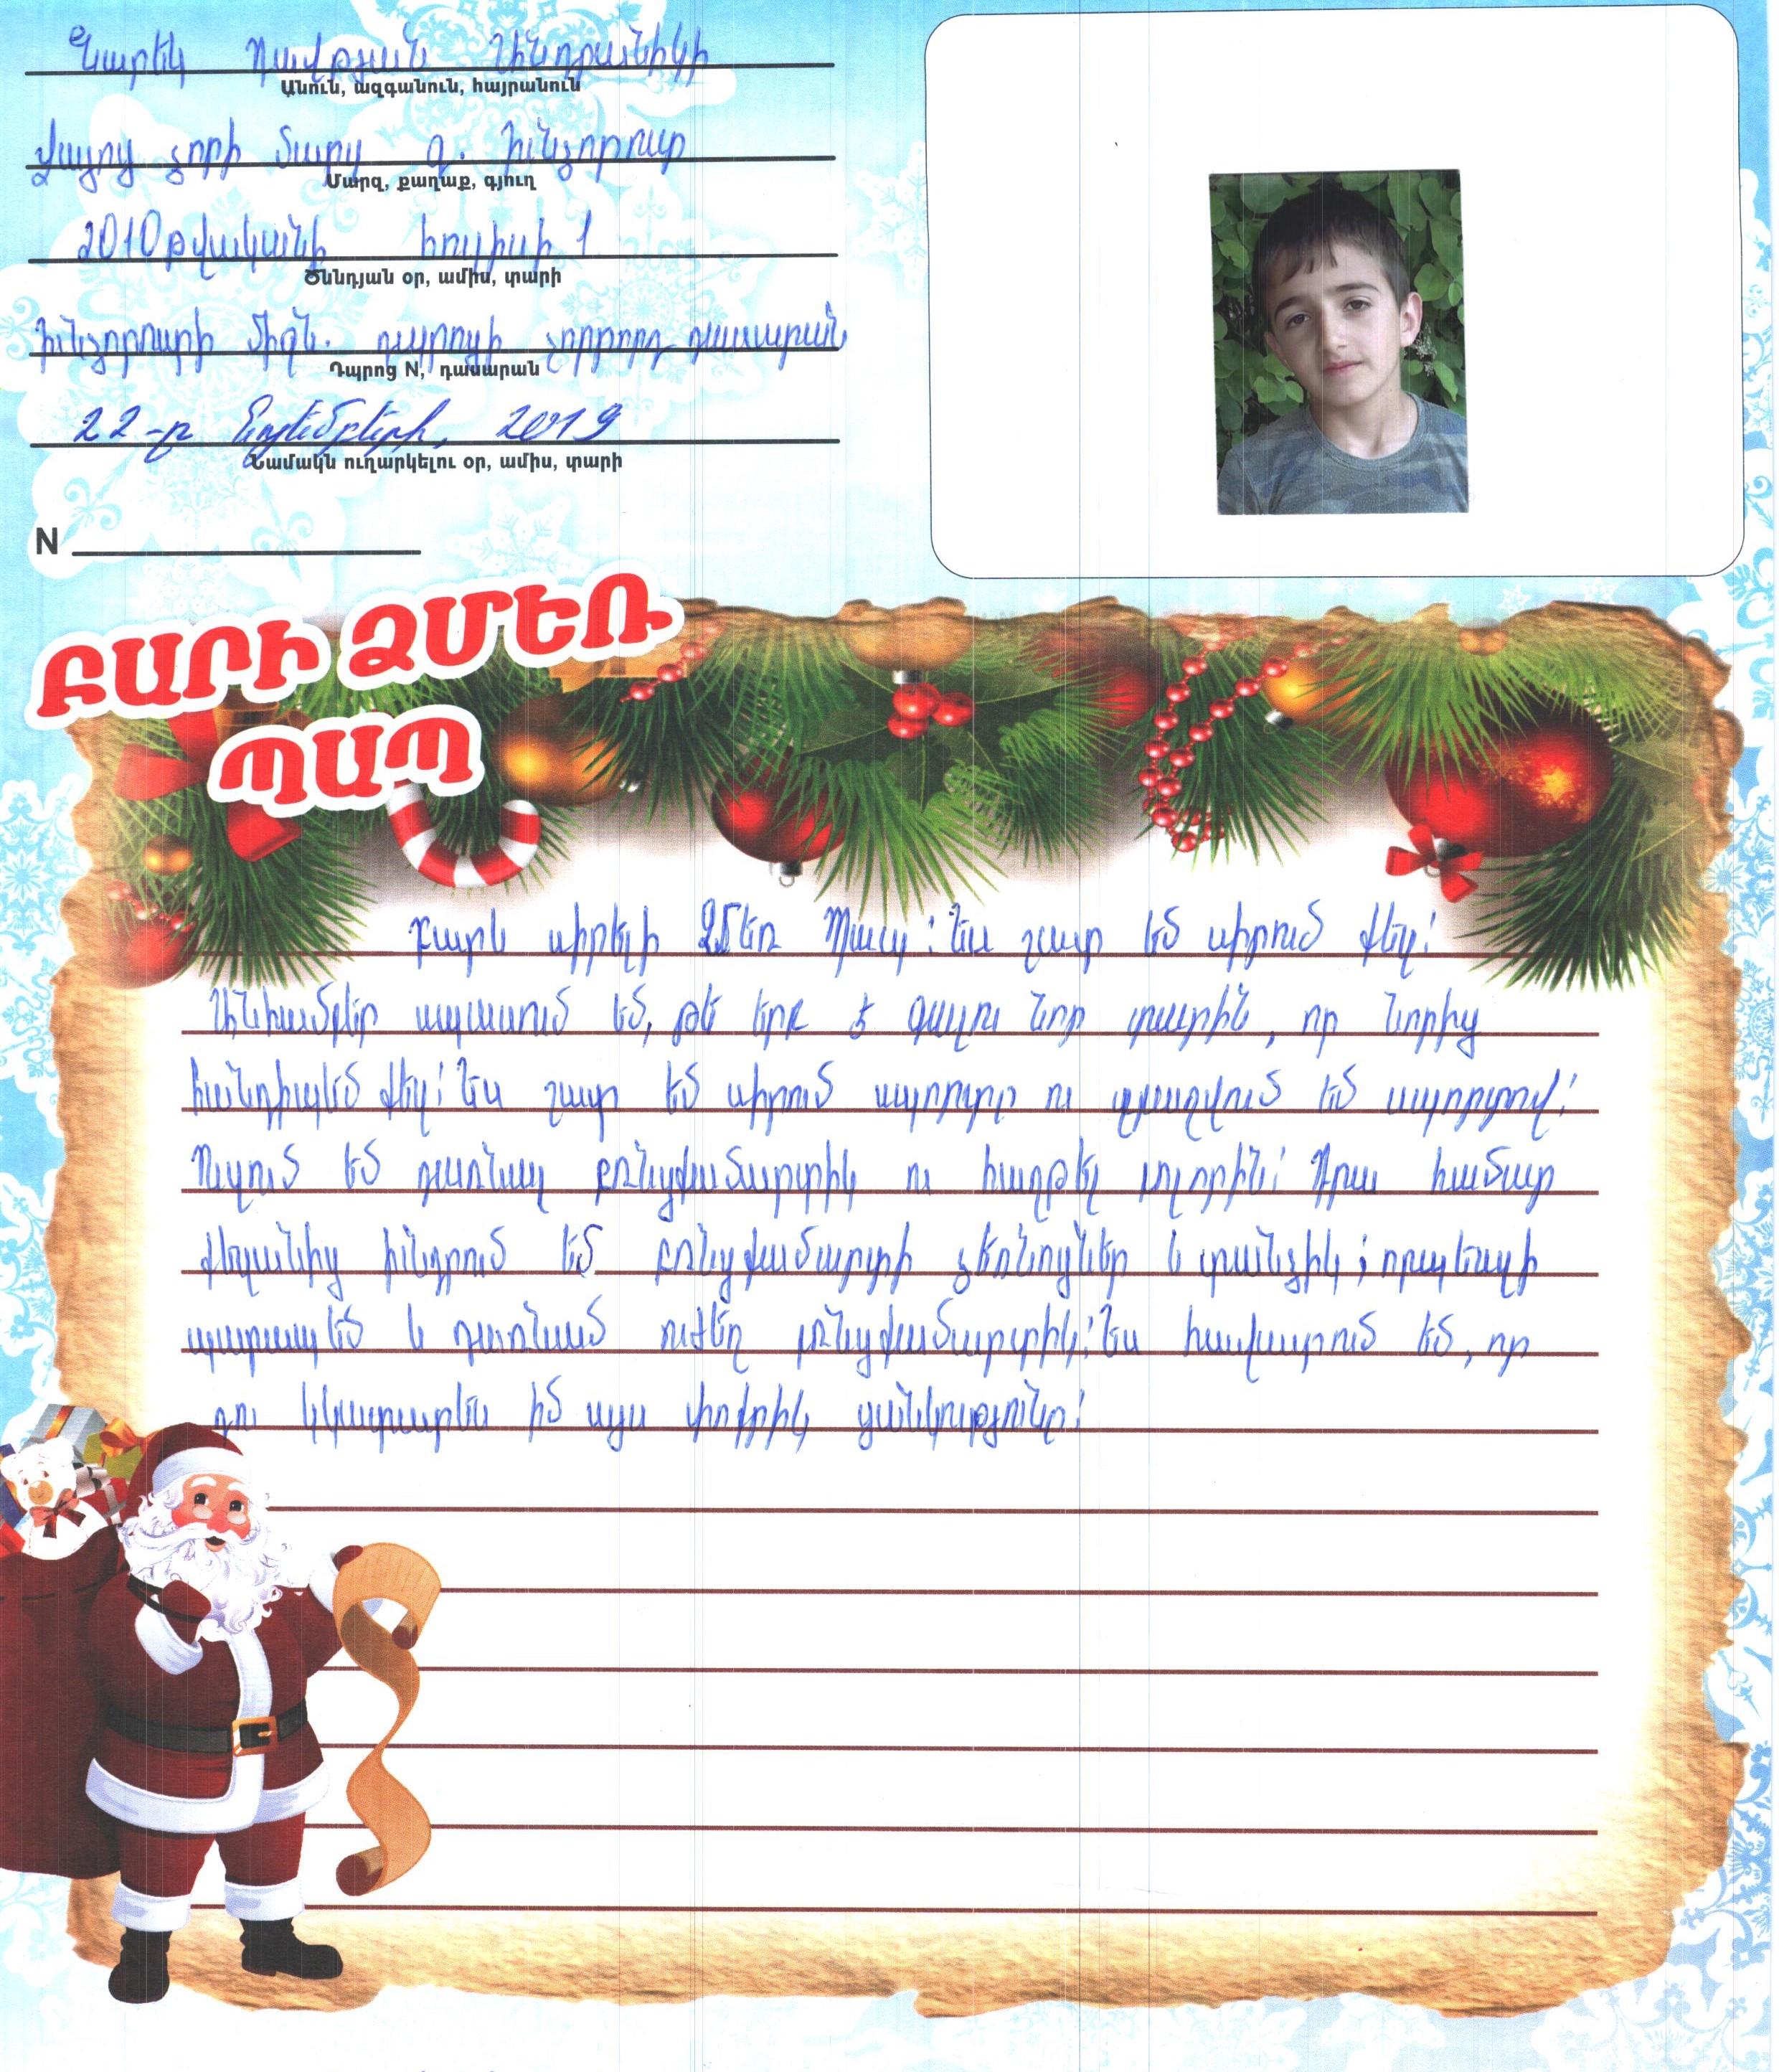 Նարեկ Դավթյան Անդրանիկի
Անուն, ազգանուն, հայրանուն
Վայոց ձորի մարզ գ. Խնձորուտ
Մարզ, քաղաք, գյուղ
2010թվականի հուլիսի 1
Ծննդյան օր, ամիս, տարի
Խնձորուտի միջն. դպրոցի չորրորդ դասարան
Դպրոց N, դասարան
22-ը նոյեմբերի, 2019
Նամակն ուղարկելու օր, ամիս, տարի
N
ԲԱՐԻ ՁՄԵՌ
ՊԱՊ
Բարև սիրելի Ձմեռ Պապ: Ես շատ եմ սիրում քեզ:
Անհամբեր սպասում եմ, թե երբ է գալու Նոր տարին, որ նորից
հանդիպեմ քեզ: Ես շատ եմ սիրում սպորտը ու զբաղվում եմ սպորտով:
Ուզում եմ դառնալ բռնցքամարտիկ ու հաղթել բոլորին: Դրա համար
քեզանից խնդրում եմ բռնցքամարտի ձեռնոցներ և տանձիկ, որպեսզի
պարապեմ և դառնամ ուժեղ բռնցքամարտիկ: Ես հավատում եմ, որ
դու կկատարես իմ այս փոքրիկ ցանկությունը: